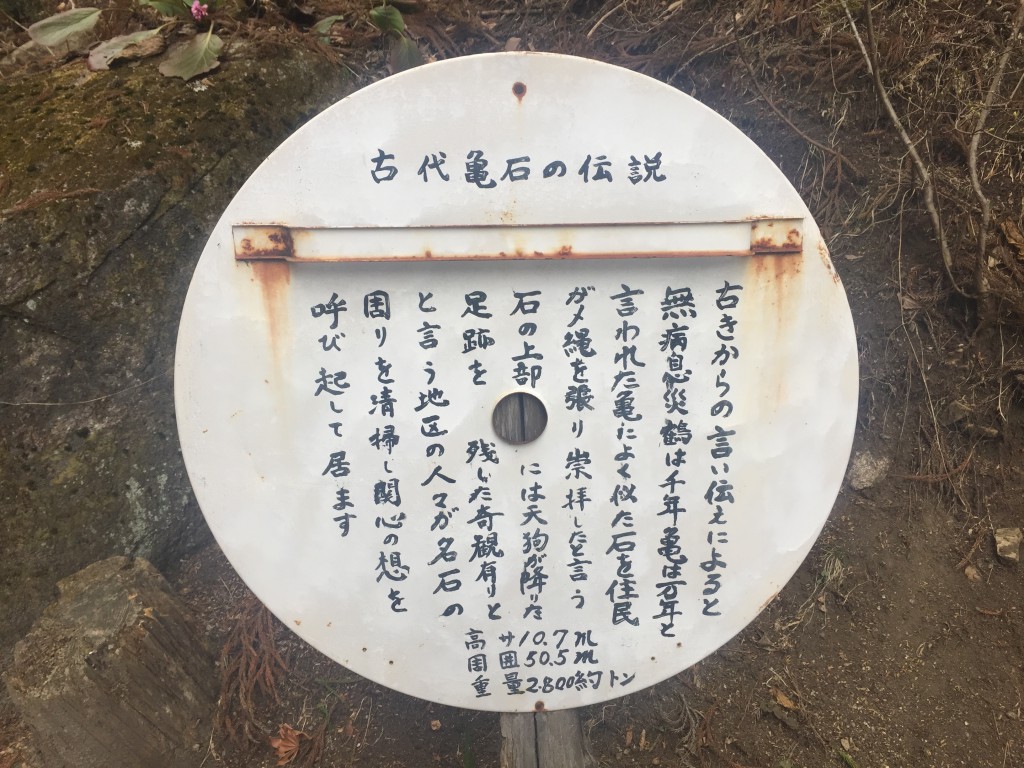 古代亀石の伝説
古きからの言い伝えによると
無病息災鶴は千年亀は万年と
言われた亀によく似た石を住民
がメ縄を張り崇拝したと言う
石の上部には天狗が降りた
足跡を残した奇観有りと
と言う地区の人々が名石の
周りを清掃し関心の想を
呼び起して居ます
高サ10.7m
周囲50.5m
重量2.800約トン